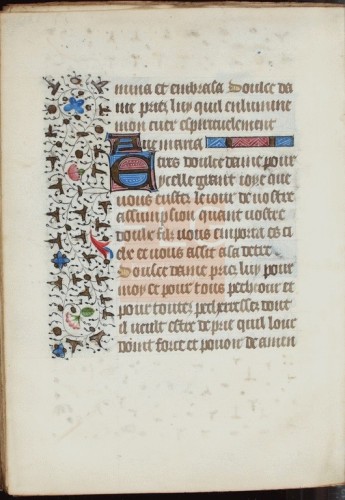 mina et embrasa Doulce da
me priez luy quil enlumine
mon cuer espirituelement
Aue maria
E tres doulce dame pour
ycelle grant ioye que
vous eustes le iour de vostre
assumpsion quant vostre
doulz filz vous emporta es ci
elx et vous assist a sa destre
Doulce dame priez luy pour
moy et pour tous pecheours et
pour toutes pecheresses dont
il veult estre de prie quil leur
doint force et pouoir de amen